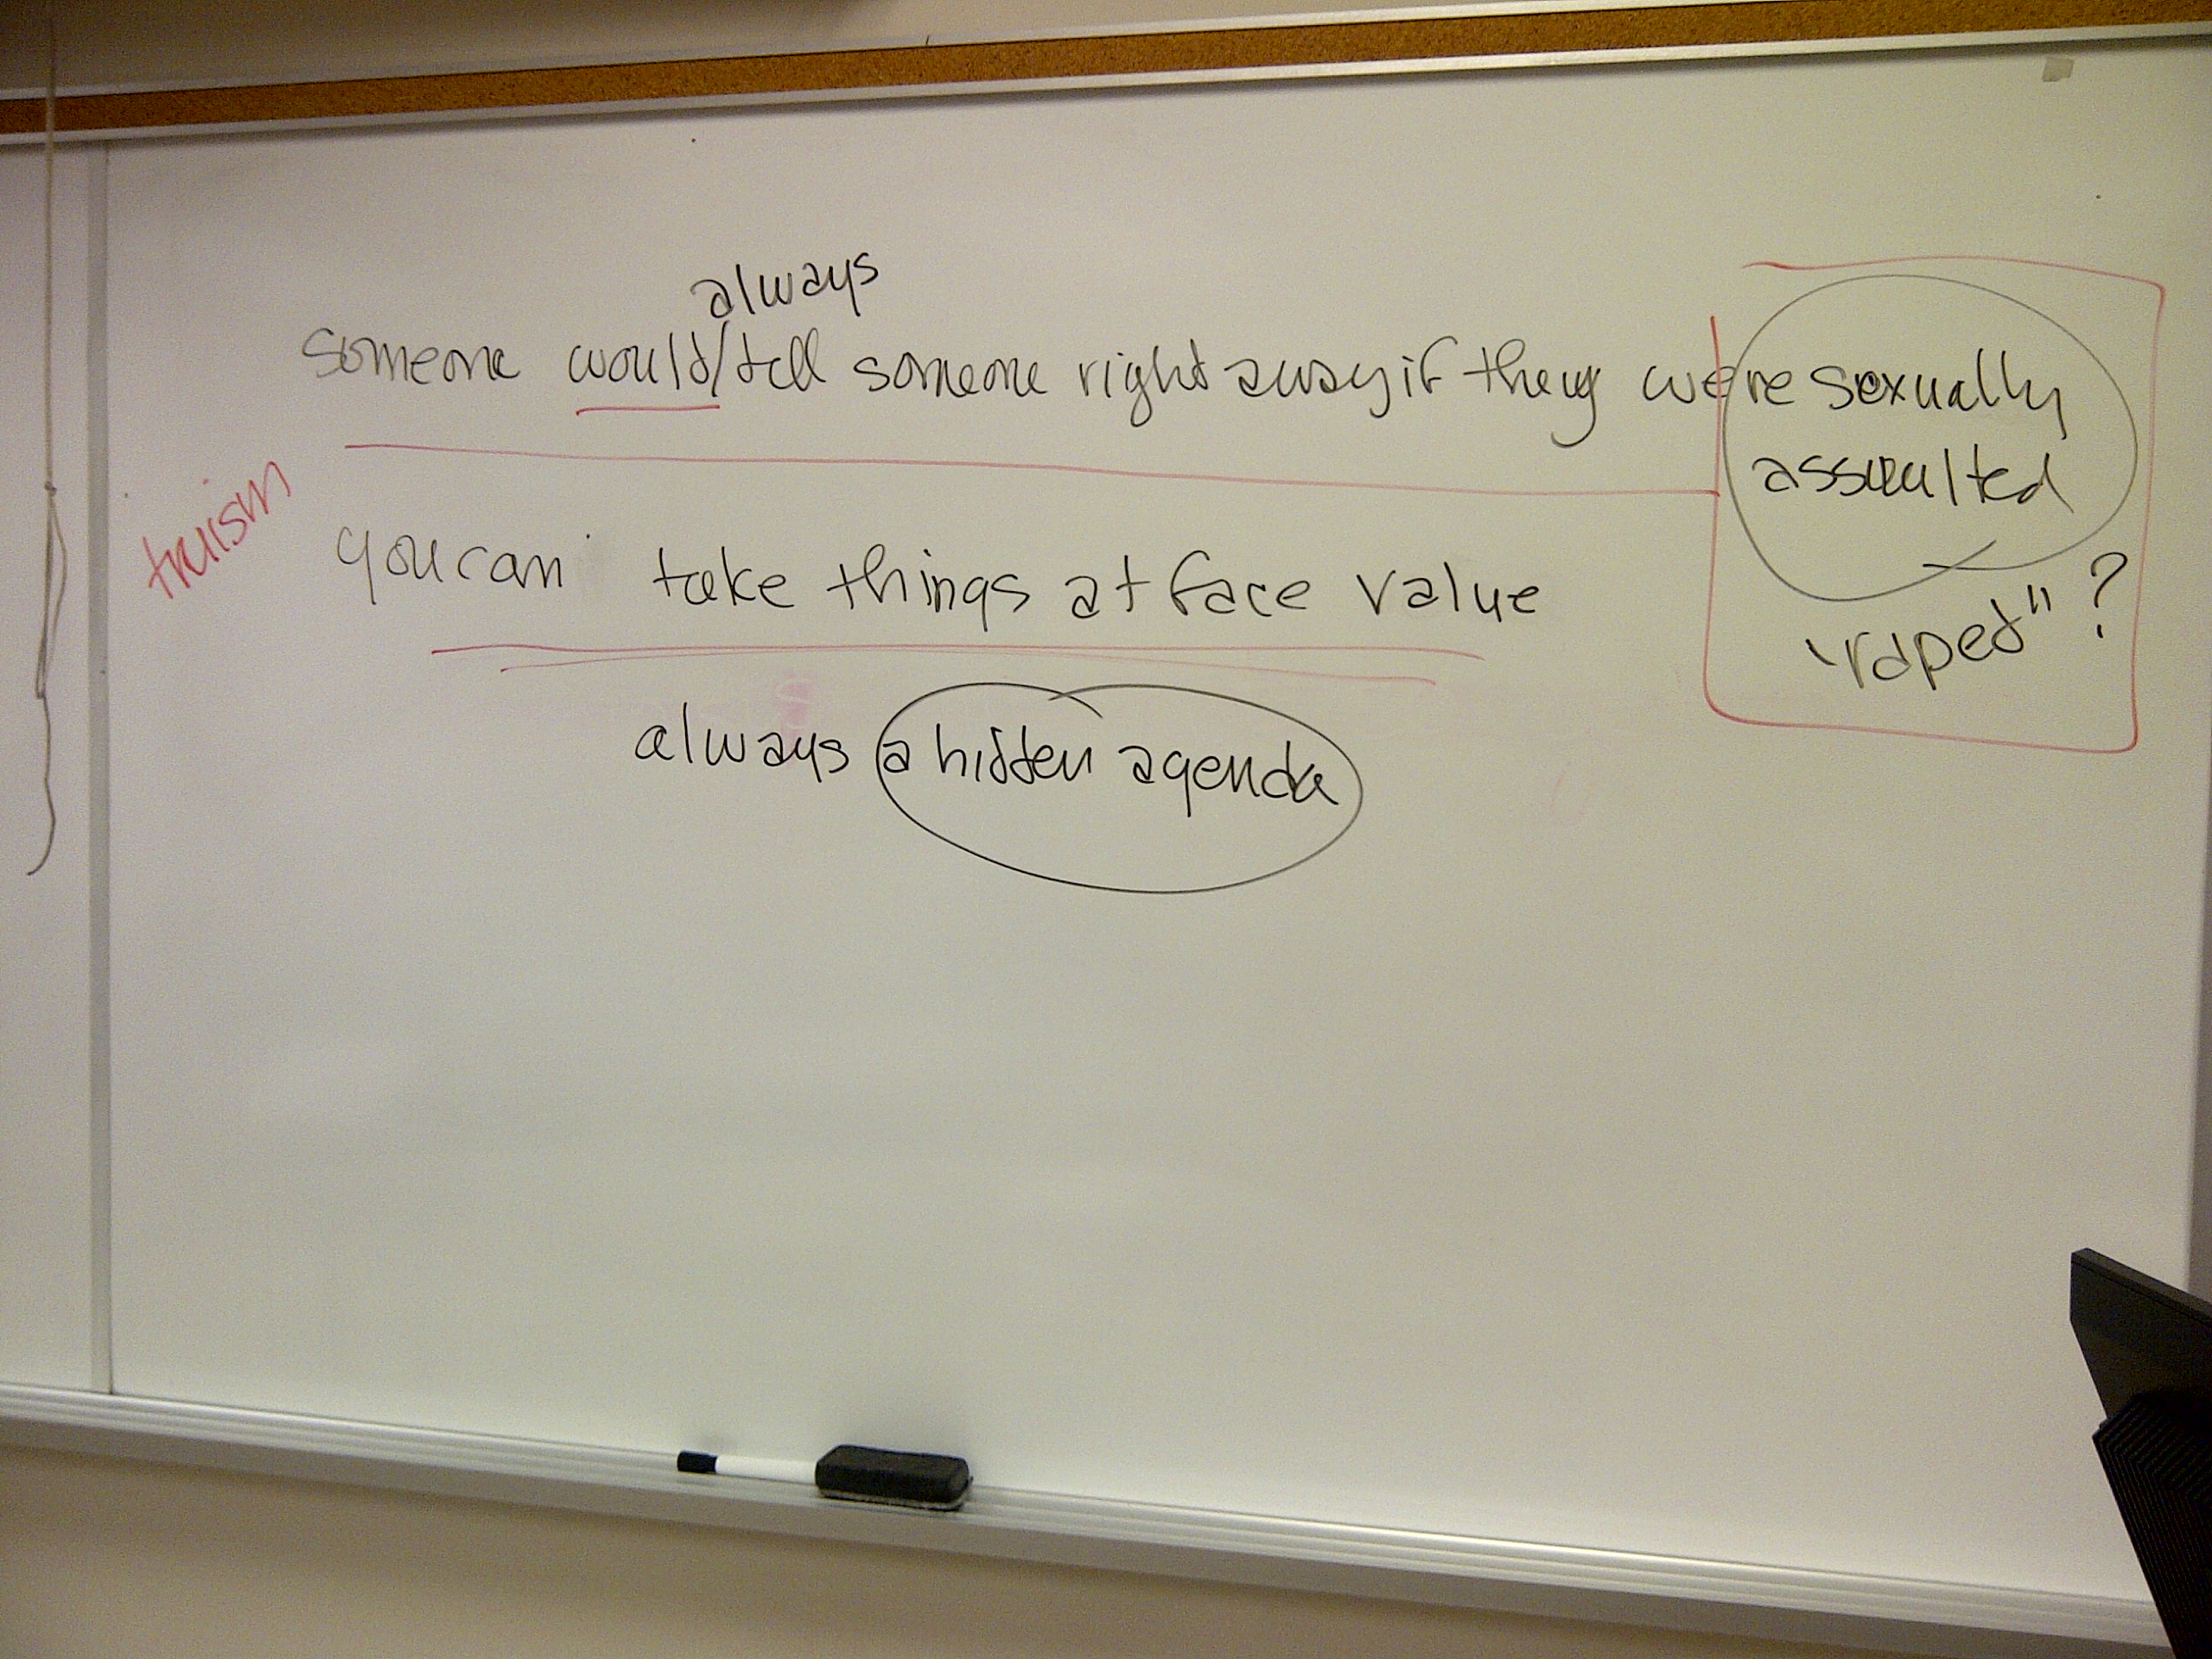 always
someone would/tell someone right away if they were sexually
assaulted
truism
you can take things at face value
"raped"?
always a hidden agenda